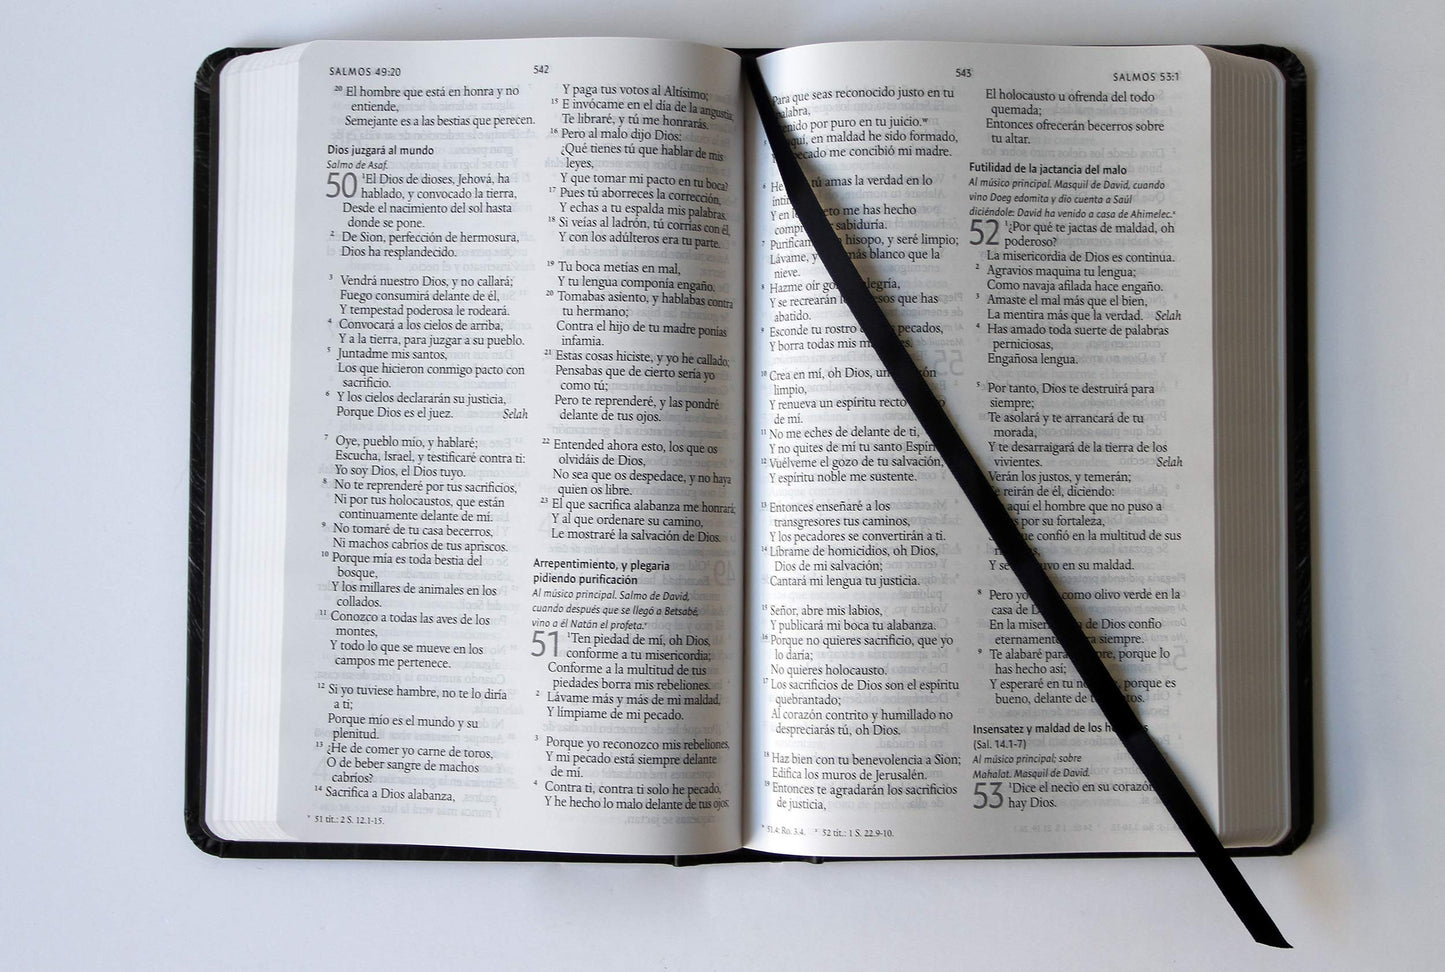 SALMOS 49:20
542
20 El hombre que está en honra y no
entiende,
Semejante es a las bestias que perecen.
Dios juzgará al mundo
Salmo de Asaf.
50 1El Dios de dioses, Jehová, ha
hablado, y convocado la tierra,
Desde el nacimiento del sol hasta
donde se pone.
2 De Sion, perfección de hermosura,
Dios ha resplandecido.
3 Vendrá nuestro Dios, y no callará;
Fuego consumirá delante de él,
Y tempestad poderosa le rodeará.
4 Convocará a los cielos de arriba,
Y a la tierra, para juzgar a su pueblo.
5 Juntadme mis santos,
Los que hicieron conmigo pacto con
sacrificio.
6 Y los cielos declararán su justicia,
Porque Dios es el juez. Selah
7 Oye, pueblo mío, y hablaré;
Escucha, Israel, y testificaré contra ti:
Yo soy Dios, el Dios tuyo.
8 No te reprenderé por tus sacrificios,
Ni por tus holocaustos, que están
continuamente delante de mí.
9 No tomaré de tu casa becerros,
Ni machos cabríos de tus apriscos.
10 Porque mía es toda bestia del
bosque,
Y los millares de animales en los
collados.
11 Conozco a todas las aves de los
montes,
Y todo lo que se mueve en los
campos me pertenece.
12 Si yo tuviese hambre, no te lo diría
a ti;
Porque mío es el mundo y su
plenitud.
13 ¿He de comer yo carne de toros,
O de beber sangre de machos
cabríos?
14 Sacrifica a Dios alabanza,
Y paga tus votos al Altísimo;
15 E invócame en el día de la angustia;
Te libraré, y tú me honrarás.
16 Pero al malo dijo Dios:
¿Qué tienes tú que hablar de mis
leyes,
Y que tomar mi pacto en tu boca?
17 Pues tú aborreces la corrección,
Y echas a tu espalda mis palabras.
18 Si veías al ladrón, tú corrías con él,
Y con los adúlteros era tu parte.
19 Tu boca metías en mal,
Y tu lengua componía engaño.
20 Tomabas asiento, y hablabas contra
tu hermano;
Contra el hijo de tu madre ponías
infamia.
21 Estas cosas hiciste, y yo he callado;
Pensabas que de cierto sería yo
como tú;
Pero te reprenderé, y las pondré
delante de tus ojos.
22 Entended ahora esto, los que os
olvidáis de Dios,
No sea que os despedace, y no haya
quien os libre.
23 El que sacrifica alabanza me honrará;
Y al que ordenare su camino,
Le mostraré la salvación de Dios.
Arrepentimiento, y plegaria
pidiendo purificación
Al músico principal. Salmo de David,
cuando después que se llegó a Betsabé,
vino a él Natán el profeta.
51 1Ten piedad de mí, oh Dios,
conforme a tu misericordia;
Conforme a la multitud de tus
piedades borra mis rebeliones.
2 Lávame más y más de mi maldad,
Y límpiame de mi pecado.
3 Porque yo reconozco mis rebeliones,
Y mi pecado está siempre delante
de mí.
4 Contra ti, contra ti solo he pecado,
Y he hecho lo malo delante de tus ojos;
51 tít.: 2 S. 12.1-15.
543
SALMOS 53:1
Para que seas reconocido justo en tu
palabra,
por puro en tu juicio.
en maldad he sido formado,
me concibió mi madre.
6 tú amas la verdad en lo
Y en me has hecho
sabiduría.
7 hisopo, y seré limpio;
Lávame, y más blanco que la
nieve.
8 Hazme oír
Y se recrearán que has
abatido.
9 Esconde tu rostro pecados,
Y borra todas mis
10 Crea en mí, oh Dios, un
limpio,
Y renueva un espíritu recto
de mí.
11 No me eches de delante de ti,
Y no quites de mí tu santo
12 Vuélveme el gozo de tu salvación,
Y espíritu noble me sustente.
13 Entonces enseñaré a los
transgresores tus caminos,
Y los pecadores se convertirán a ti.
14 Líbrame de homicidios, oh Dios,
Dios de mi salvación;
Cantará mi lengua tu justicia.
15 Señor, abre mis labios,
Y publicará mi boca tu alabanza.
16 Porque no quieres sacrificio, que yo
lo daría;
No quieres holocausto.
17 Los sacrificios de Dios son el espíritu
quebrantado;
Al corazón contrito y humillado no
despreciarás tú, oh Dios.
18 Haz bien con tu benevolencia a Sion;
Edifica los muros de Jerusalén.
19 Entonces te agradarán los sacrificios
de justicia,
El holocausto u ofrenda del todo
quemada;
Entonces ofrecerán becerros sobre
tu altar.
Futilidad de la jactancia del malo
Al músico principal. Masquil de David, cuando
vino Doeg edomita y dio cuenta a Saúl
diciéndole: David ha venido a casa de Ahimelec.
52 1¿Por qué te jactas de maldad, oh
poderoso?
La misericordia de Dios es continua.
2 Agravios maquina tu lengua;
Como navaja afilada hace engaño.
3 Amaste el mal más que el bien,
La mentira más que la verdad. Selah
4 Has amado toda suerte de palabras
perniciosas,
Engañosa lengua.
5 Por tanto, Dios te destruirá para
siempre;
Te asolará y te arrancará de tu
morada,
Y te desarraigará de la tierra de los
vivientes. Selah
Verán los justos, y temerán;
reirán de él, diciendo:
aquí el hombre que no puso a
por su fortaleza,
confió en la multitud de sus
Y se en su maldad.
8 Pero yo como olivo verde en la
casa de
En la de Dios confío
eternamente siempre.
9 Te alabaré para porque lo
has hecho así;
Y esperaré en tu porque es
bueno, delante de
Insensatez y maldad de los
(Sal. 14.1-7)
Al músico principal; sobre
Mahalat. Masquil de David.
53 1Dice el necio en su corazón:
hay Dios.
51.4: Ro. 3.4. 52 tít.: 1 S. 22.9-10.